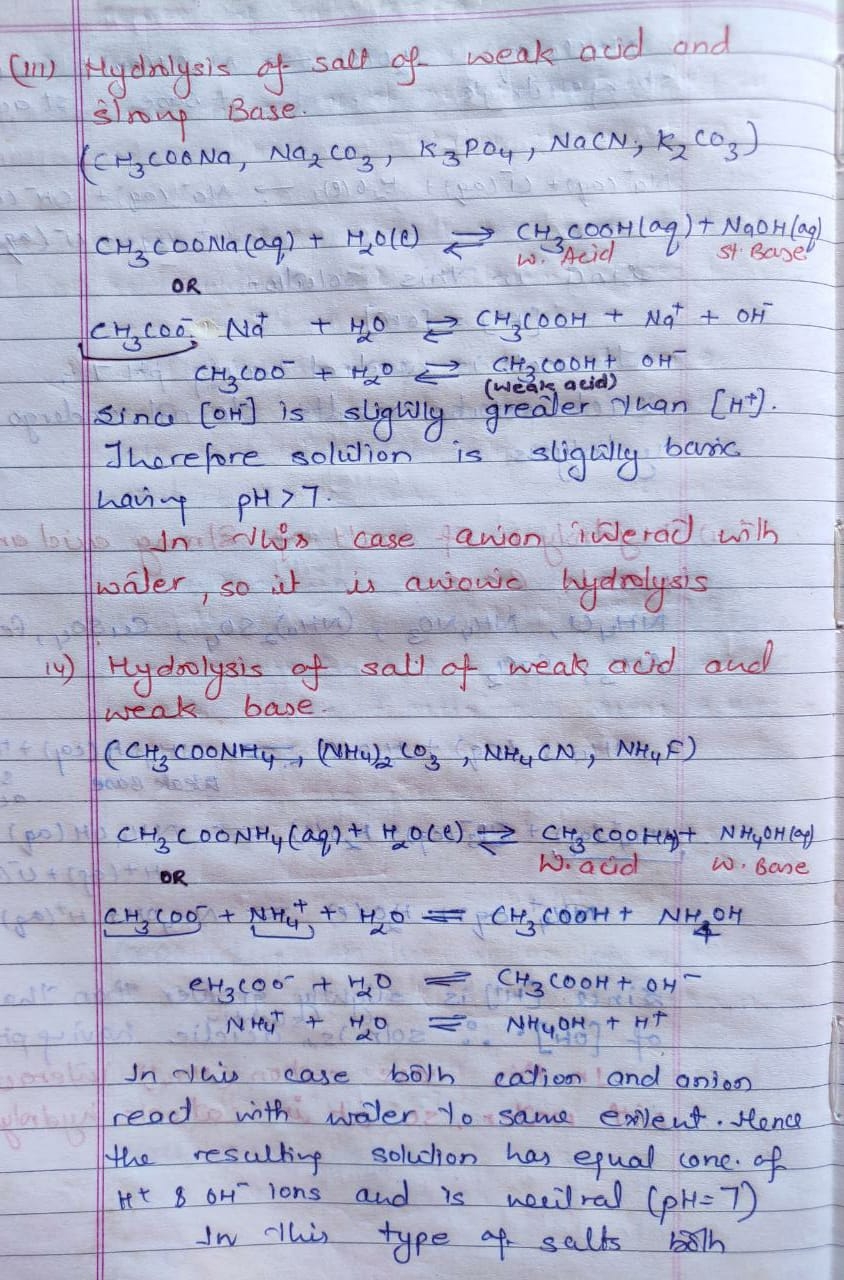 (III) Hydrolysis of salt of weak acid and
strong Base.
(CH₃COONa, Na₂CO₃, K₃PO₄, NaCN, K₂CO₃)
CH₃COONa(aq) + H₂O(l) ⇌ CH₃COOH(aq) + NaOH(aq)
W. Acid St. Base
OR
CH₃COO⁻ Na⁺ + H₂O ⇌ CH₃COOH + Na⁺ + OH⁻
CH₃COO⁻ + H₂O ⇌ CH₃COOH + OH⁻
(weak acid)
Since [OH⁻] is slightly greater than [H⁺].
Therefore solution is slightly basic
having pH > 7.
In this case anion interact with
water, so it is anionic hydrolysis
IV) Hydrolysis of salt of weak acid and
weak base.
(CH₃COONH₄, (NH₄)₂CO₃, NH₄CN, NH₄F)
CH₃COONH₄(aq) + H₂O(l) ⇌ CH₃COOH(aq) + NH₄OH(aq)
W. acid W. Base
OR
CH₃COO⁻ + NH₄⁺ + H₂O ⇌ CH₃COOH + NH₄OH
CH₃COO⁻ + H₂O ⇌ CH₃COOH + OH⁻
NH₄⁺ + H₂O ⇌ NH₄OH + H⁺
In this case both cation and anion
react with water to same extent. Hence
the resulting solution has equal conc. of
H⁺ & OH⁻ ions and is neutral (pH=7)
In this type of salts both